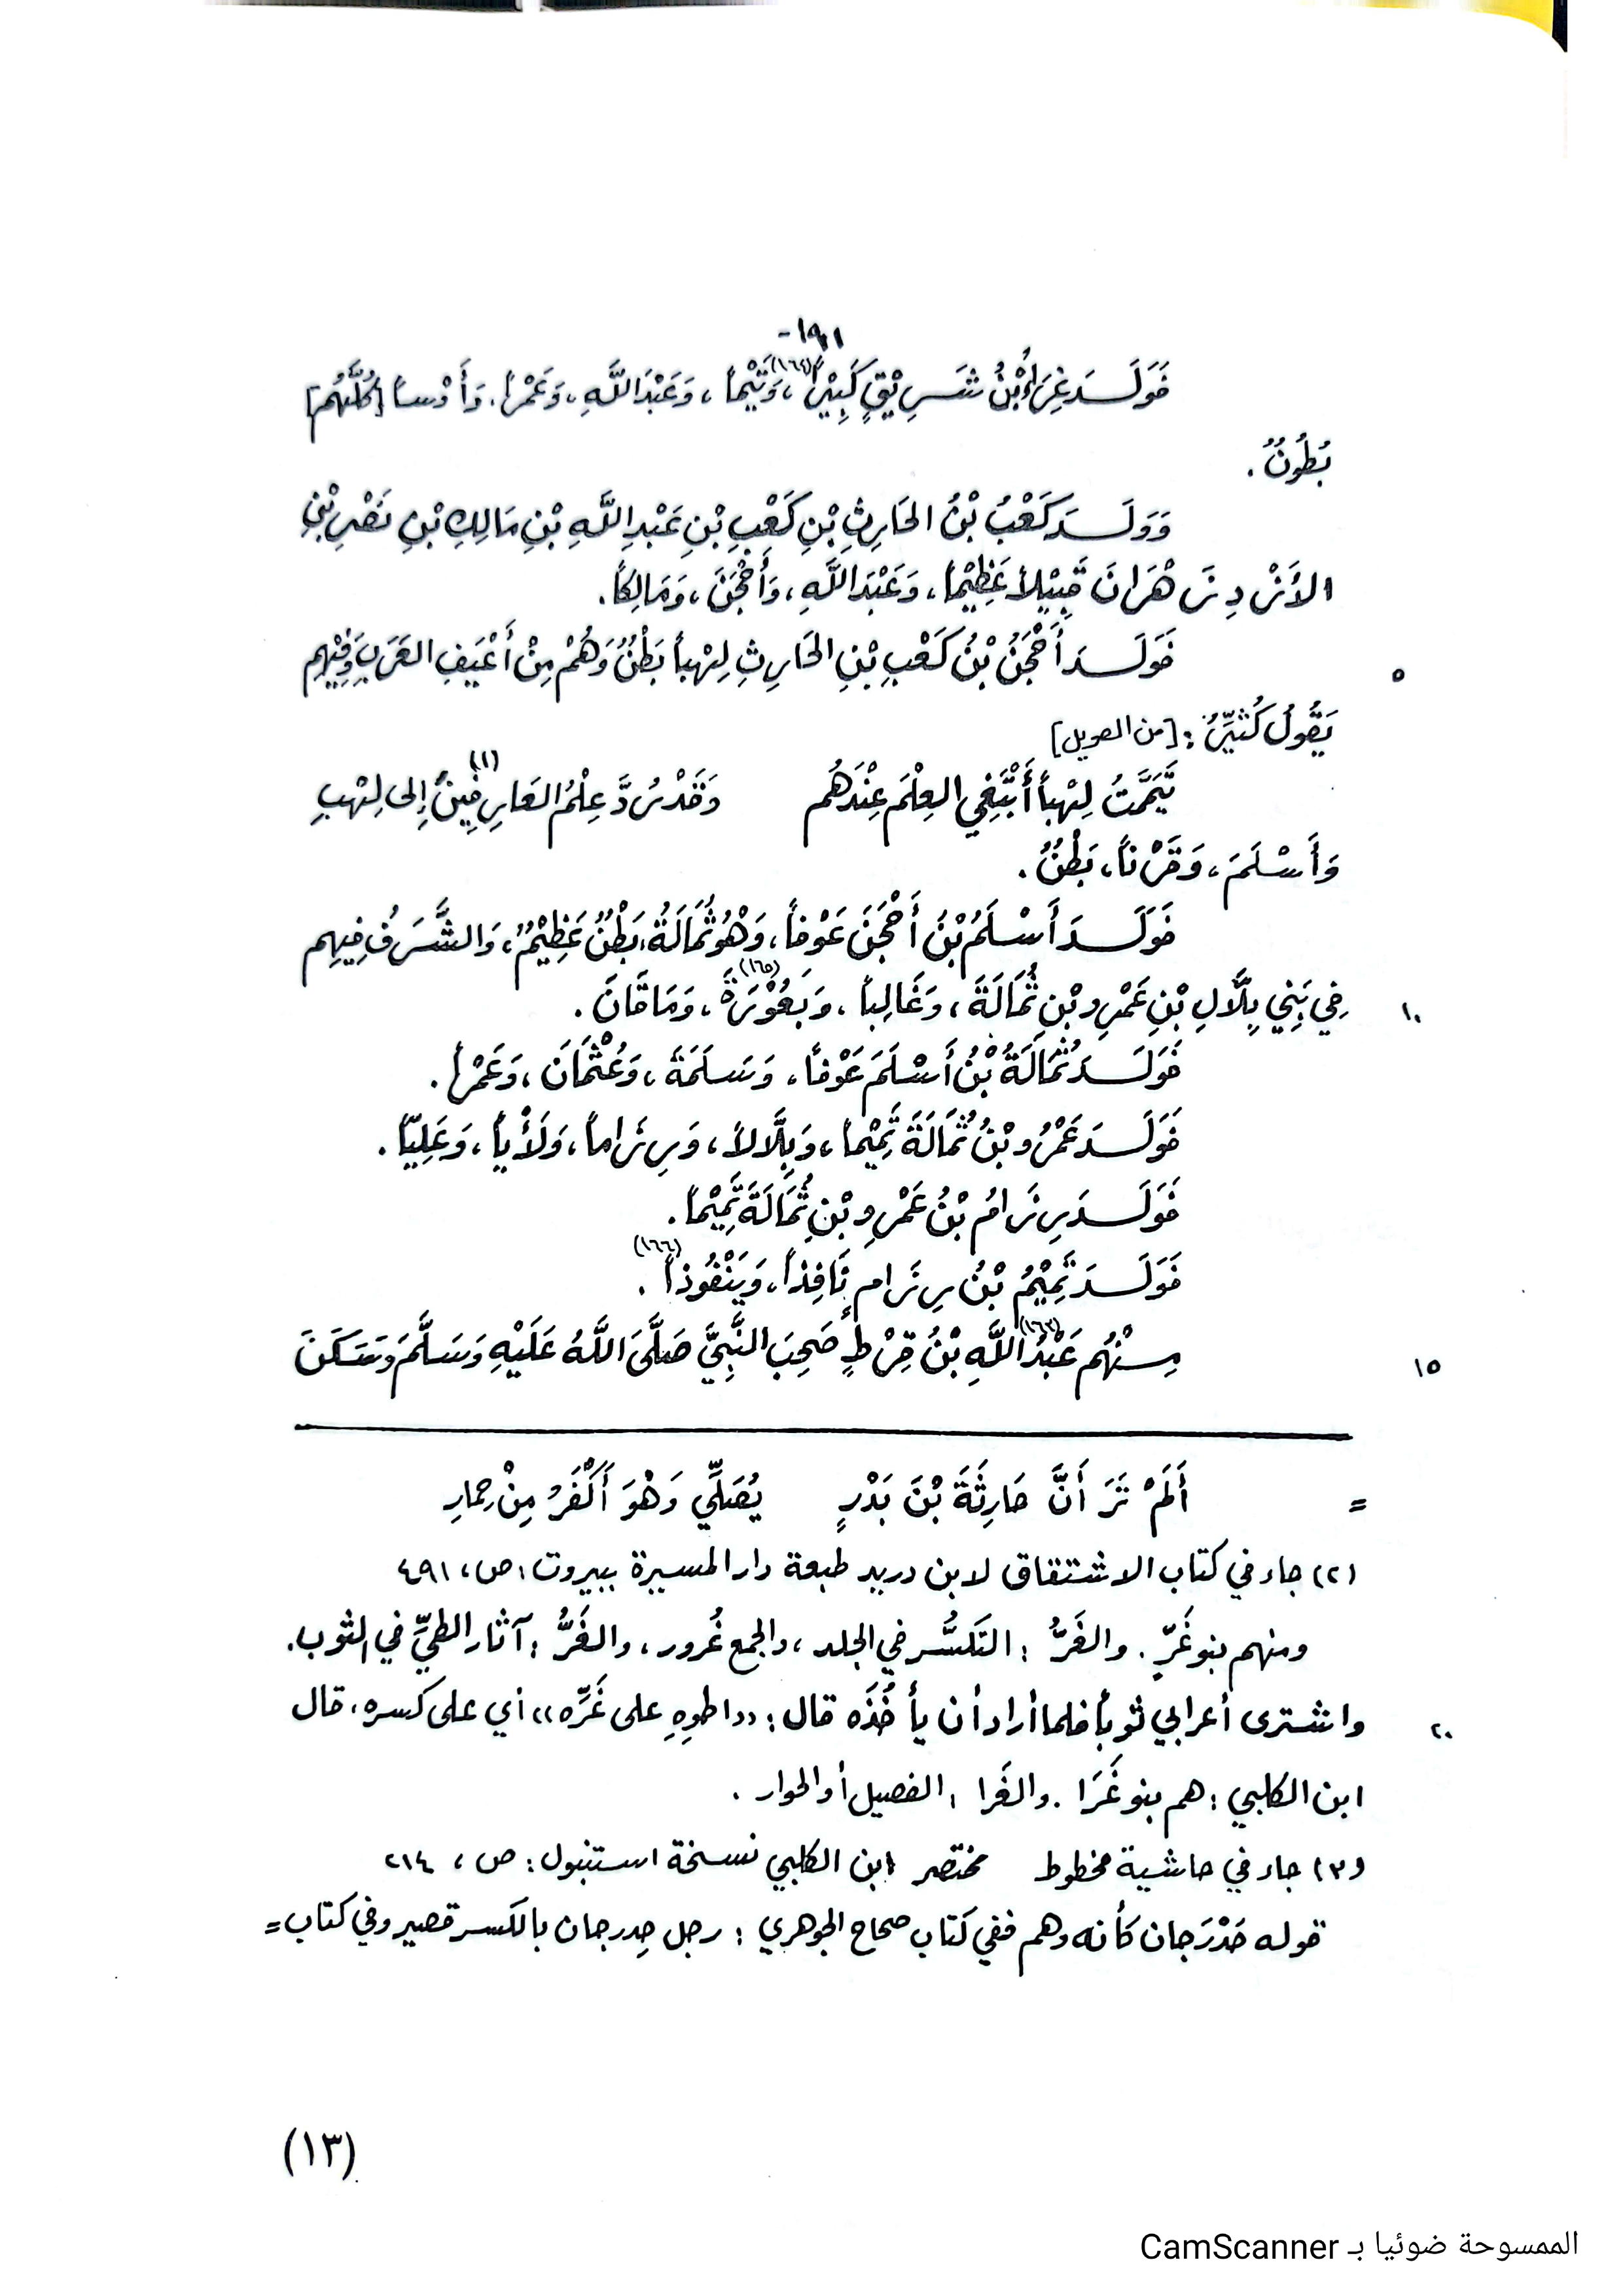 -١٩١
فَوَلَـــدَ غِرَاءُ بْنُ شَـرِيْقٍ كَبِيْراً(١٦٤)، وَتَيْماً، وَعَبْدَ اللَّهِ، وَعَمْراً. وَأَوْساً [كُلُّهُم]
بُطُونٌ.
وَوَلَـــدَ كَعْبُ بْنُ الحَارِثِ بْنِ كَعْبِ بْنِ عَبْدِ اللَّهِ بْنِ مَالِكِ بْنِ نَصْرِ بْنِ
الأَزْدِ زَهْرَانَ قَبِيْلاً عَظِيْماً، وَعَبْدَ اللَّهِ، وَأَحْجَنَ، وَمَالِكاً.
فَوَلَـــدَ أَحْجَنُ بْنُ كَعْبِ بْنِ الحَارِثِ لِهْباً بَطْنٌ وَهُمْ مِنْ أَعْيَفِ العَرَبِ وَفِيْهِم
٥
يَقُولُ كُثَيِّرٌ: [من الطويل]
تَيَمَّمْتُ لِهْباً أَبْتَغِي العِلْمَ عِنْدَهُم وَقَدْ رُدَّ عِلْمُ العَارِفِينَ إِلى لِهْبِ(١)
وَأَسْلَمَ، وَقَرْناً، بَطْنٌ.
فَوَلَـــدَ أَسْلَمُ بْنُ أَحْجَنَ عَوْفاً، وَهْوُ ثُمَالَةُ، بَطْنٌ عَظِيْمٌ، وَالشَّرَفُ فِيهِم
فِي بَنِي بِلَّالِ بْنِ عَمْرِو بْنِ ثُمَالَةَ، وَغَالِباً، وَبَعُوْرَةَ(١٦٥)، وَمَاقَانَ.
١٠
فَوَلَـــدَ ثُمَالَةُ بْنُ أَسْلَمَ عَوْفاً، وَسَلَمَةَ، وَعُثْمَانَ، وَعَمْراً.
فَوَلَـــدَ عَمْرُو بْنُ ثُمَالَةَ تَمِيْماً، وَبِلَّالاً، وَرِزَاماً، وَلَأْياً، وَعَلِيّاً.
فَوَلَـــدَ رِزَامُ بْنُ عَمْرِو بْنِ ثُمَالَةَ تَمِيْماً.
فَوَلَـــدَ تَمِيْمُ بْنُ رِزَامٍ نَافِذاً، وَيَنْفُوذاً(١٦٦).
مِـنْهُم عَبْدُ اللَّهِ(١٦٣) بْنُ قِرْطٍ صَحِبَ النَّبِيَّ صَلَّى اللَّهُ عَلَيْهِ وَسَلَّمَ وَسَكَنَ
١٥
= أَلَمْ تَرَ أَنَّ حَارِثَةَ بْنَ بَدْرٍ يُصَلِّي وَهْوَ أَكْفَرُ مِنْ حِمارِ
(٢) جاء في كتاب الاشتقاق لابن دريد طبعة دار المسيرة ببيروت: ص، ٤٩١
ومنهم بنو غَرٍّ. والغَرُّ: التكسُّر في الجلد، والجمع غُرور، والغَرُّ: آثار الطيِّ في الثوب.
واشترى أعرابي ثوباً فلما أراد أن يأخُذَه قال: ((اطوِهِ على غَرِّه)) أي على كسره، قال
٢٠
ابن الكلبي: هم بنو غَرَا. والغَرا: الفصيل أو الحوار.
(٣) جاء في حاشية مخطوط مختصر ابن الكلبي نسخة استنبول: ص، ٢١٤
قوله حَدْرَجان كأنه وهم ففي كتاب صحاح الجوهري: رجل حِدرجان بالكسر قصير وفي كتاب =
(١٣)
الممسوحة ضوئيا بـ CamScanner